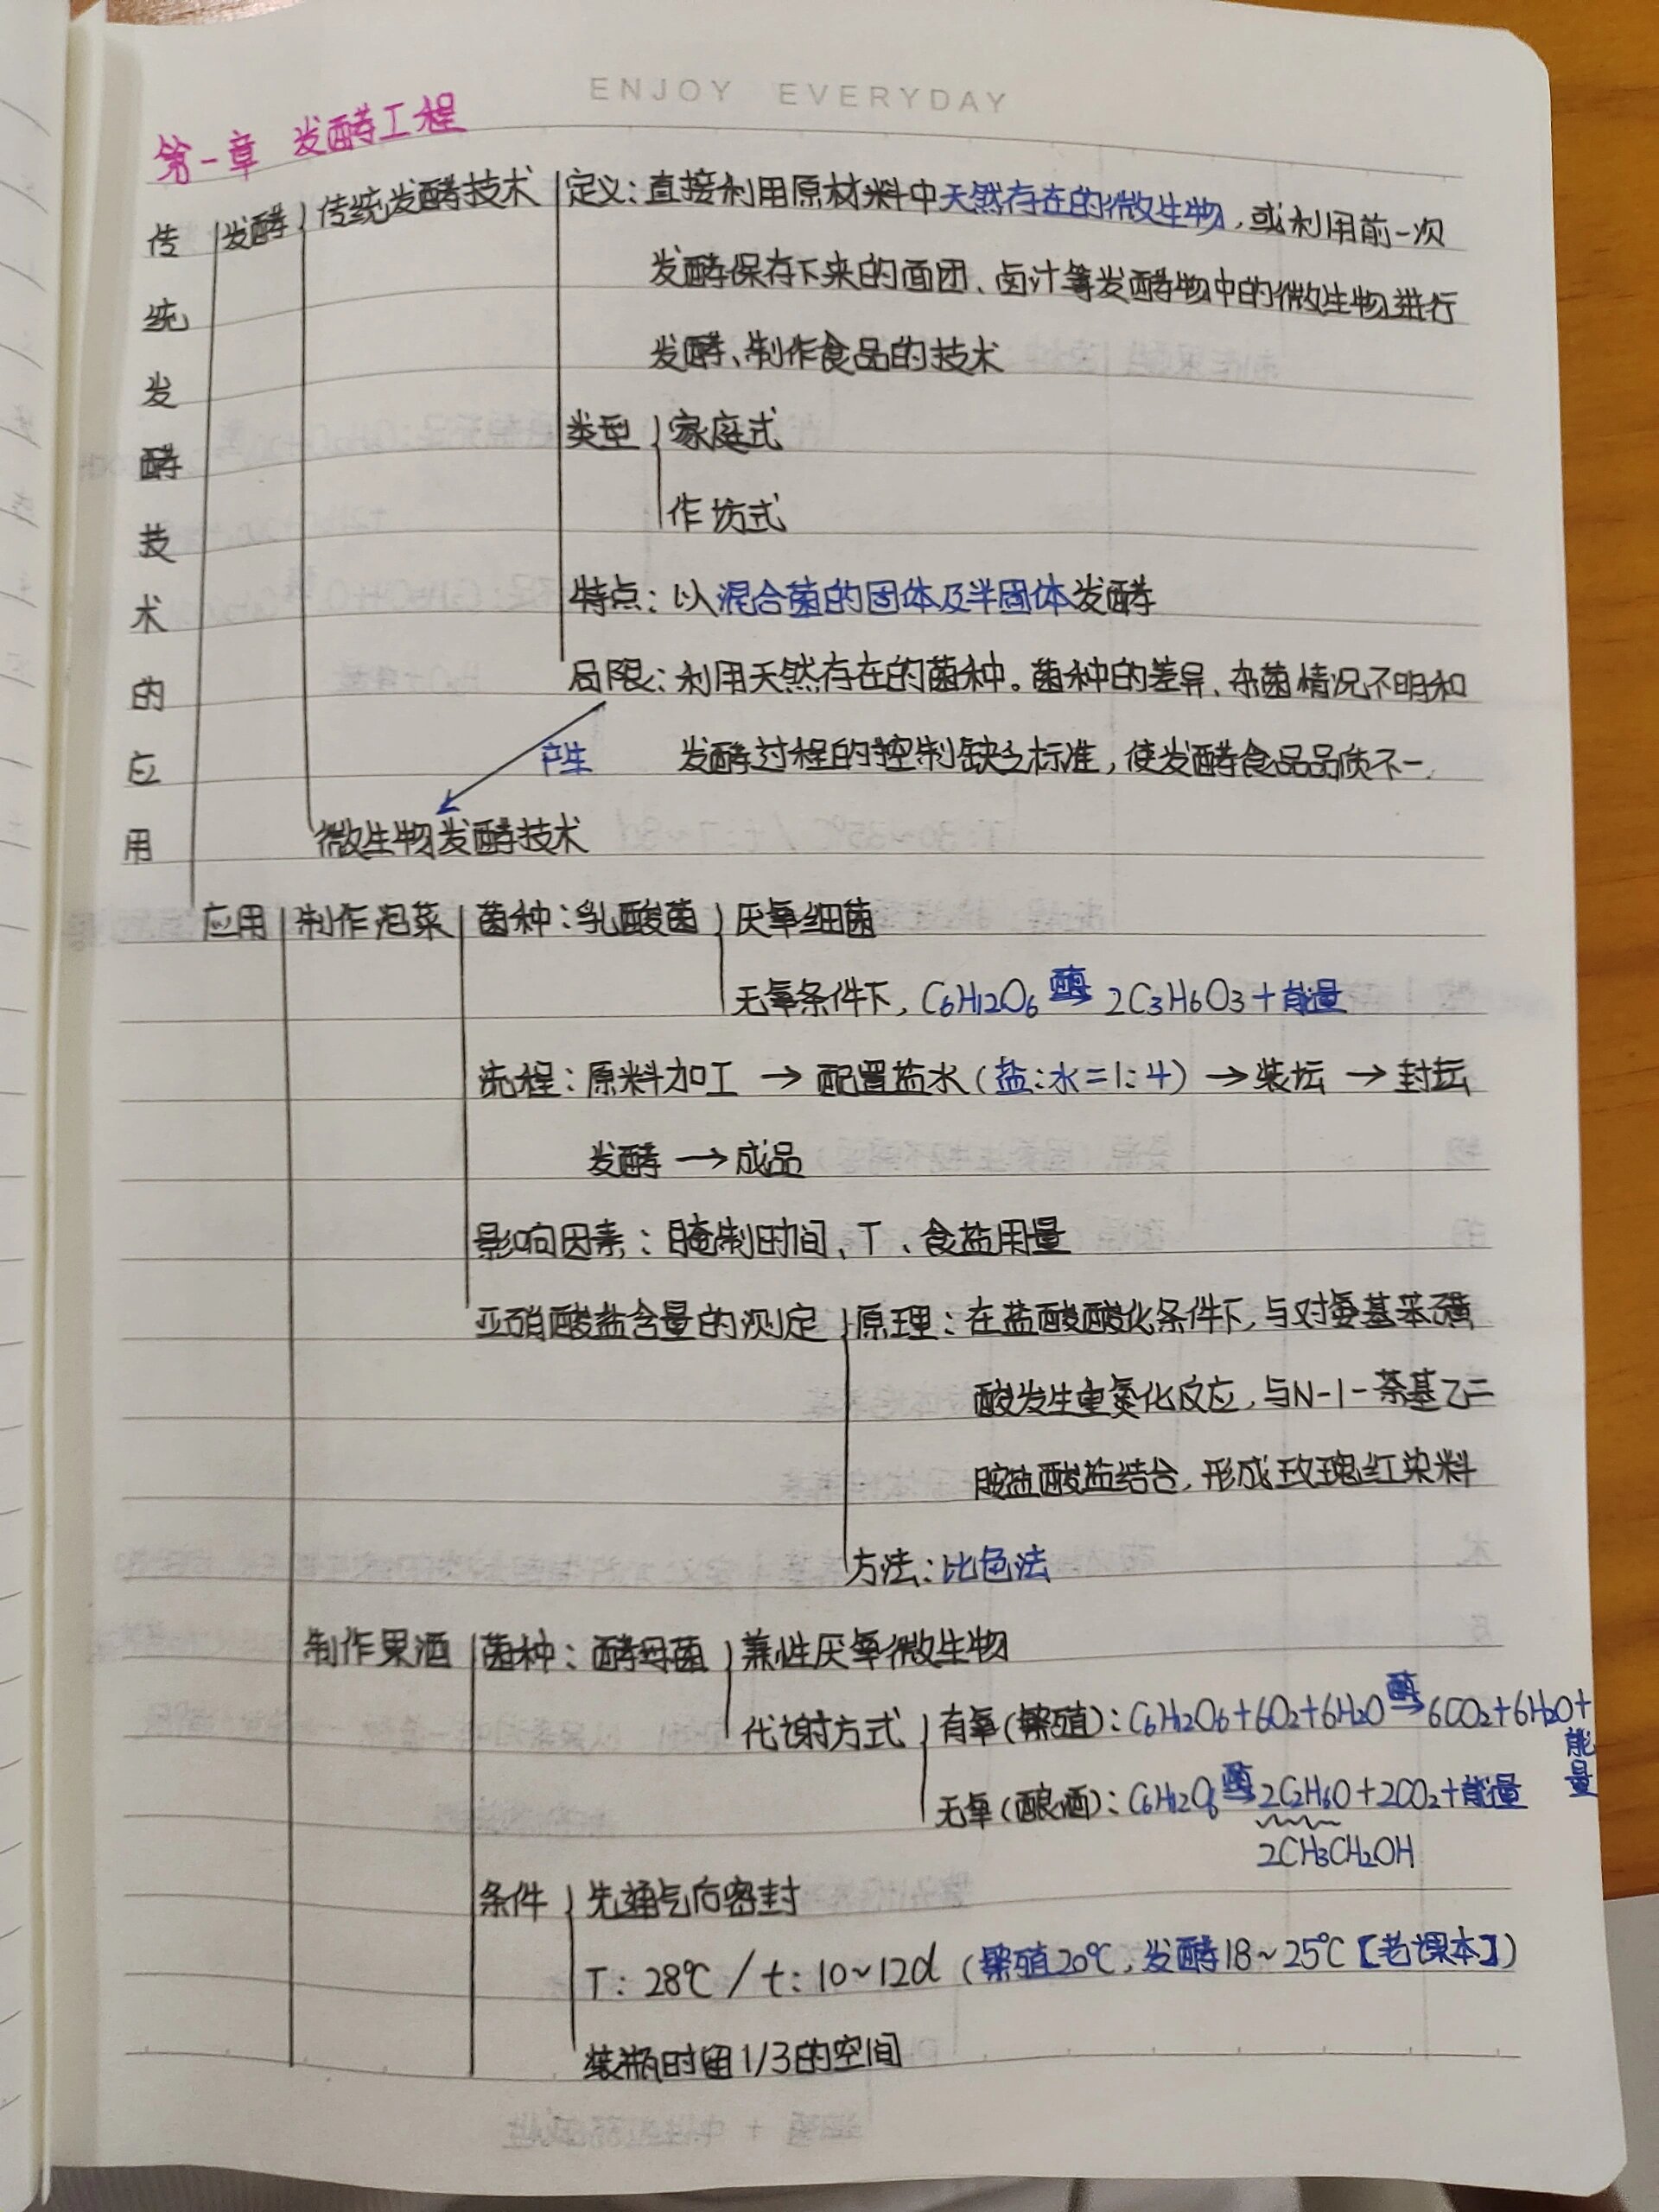 ENJOY EVERYDAY
第一章 发酵工程
传统发酵技术的应用
发酵 传统发酵技术 定义：直接利用原材料中天然存在的微生物，或利用前一次
发酵保存下来的面团、卤汁等发酵物中的微生物进行
发酵、制作食品的技术
类型 家庭式
作坊式
特点：以混合菌的固体及半固体发酵
局限：利用天然存在的菌种。菌种的差异、杂菌情况不明和
产生 发酵过程的控制缺乏标准，使发酵食品品质不一.
微生物发酵技术
应用 制作泡菜 菌种：乳酸菌 厌氧细菌
无氧条件下，C6H12O6 酶→ 2C3H6O3+能量
流程：原料加工 → 配置盐水（盐:水=1:4）→装坛 → 封坛
发酵 → 成品
影响因素：腌制时间、T、食盐用量
亚硝酸盐含量的测定 原理：在盐酸酸化条件下，与对氨基苯磺
酸发生重氮化反应，与N-1-萘基乙二
胺盐酸盐结合，形成玫瑰红染料
方法：比色法
制作果酒 菌种：酵母菌 兼性厌氧微生物
代谢方式 有氧(繁殖)：C6H12O6+6O2+6H2O 酶→ 6CO2+6H2O+能量
无氧(酿酒)：C6H12O6 酶→ 2C2H6O+2CO2+能量
2CH3CH2OH
条件 先通气后密封
T：28℃ / t：10~12d（繁殖20℃，发酵18~25℃【老课本】）
装瓶时留1/3的空间